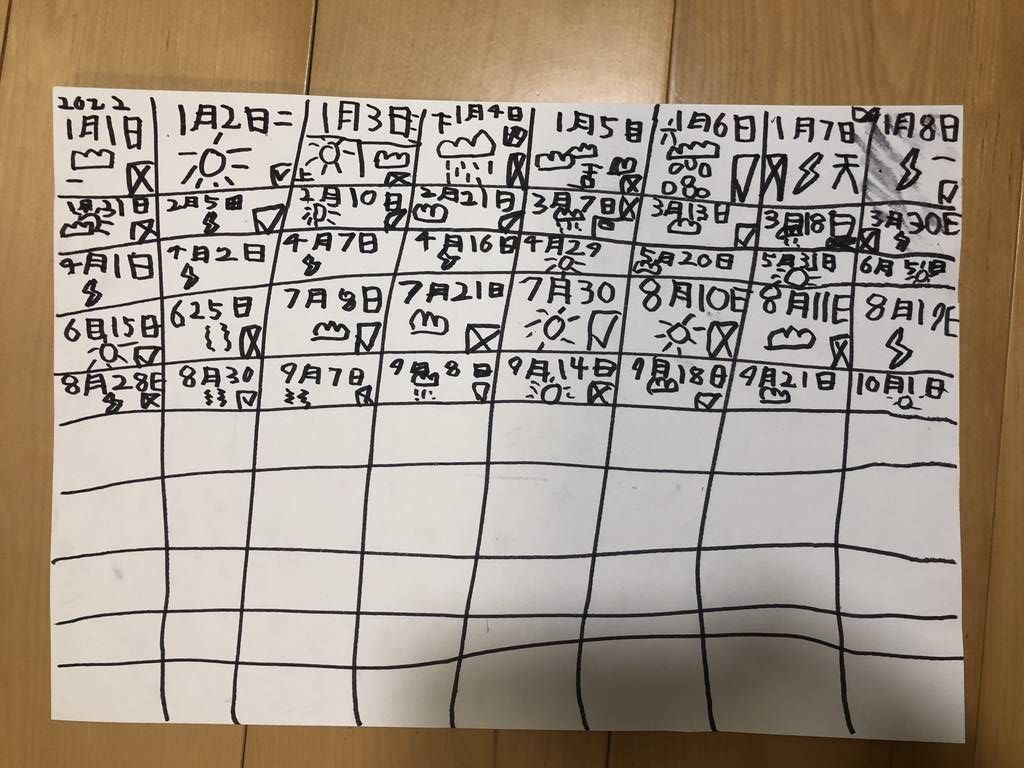 2022
1月1日
1月2日
1月3日
1月4日
1月5日
1月6日
1月7日
1月8日
天
1月21日
2月5日
2月10日
2月21日
3月7日
3月13日
3月18日
3月30日
4月1日
4月2日
4月7日
4月16日
4月29
5月20日
5月31日
6月5日
6日15日
625日
7月8日
7月21日
7月30
8月10日
8月11日
8月19日
8月28日
8月30
9月7日
9月8日
9月14日
9月18日
9月21日
10月1日